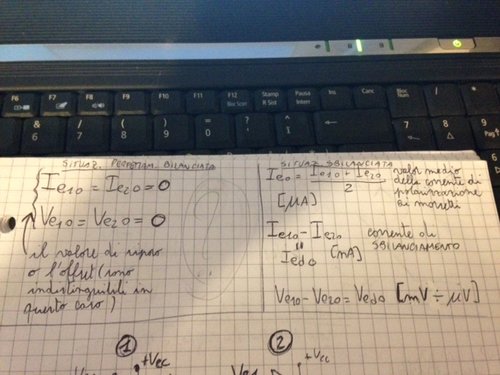 F6
F7
F8
F9
F10
F11
F12
Bloc Scorr
Stamp
R Sist
Pausa
Interr
Ins
Canc
Bloc
Num
/
*
&
6
/
7
(
8
)
9
=
0
?
'
^
ì
7
8
9
SITUAZ. PERFETTAM. BILANCIATA
Ie10 = Ie20 = 0
Ve10 = Ve20 = 0
il valore di riposo
o l'offset (sono
indistinguibili in
questo caso)
1
+Vcc
SITUAZ. SBILANCIATA
Ie0 = Ie10 + Ie20 / 2
[μA]
valor medio
della corrente di
polarizzazione
ai morsetti
Ie10 - Ie20
"
Ied0 [nA]
corrente di
SBILANCIAMENTO
Ve10 - Ve20 = Ved0 [mV ÷ μV]
2
+Vcc